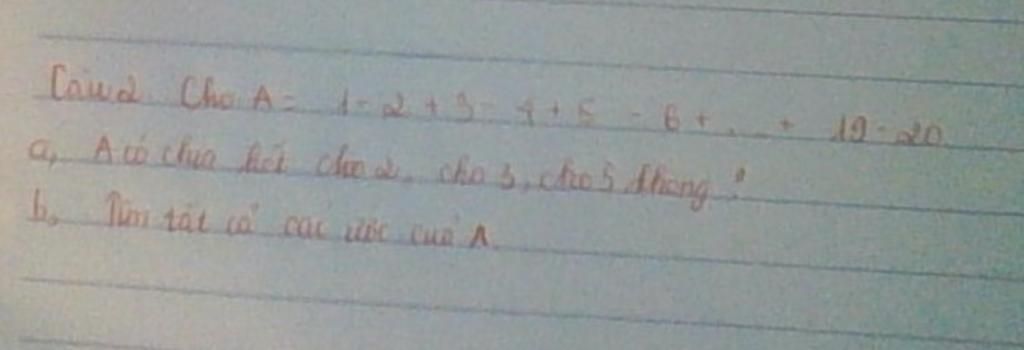 Câu 2. Cho A = 1 - 2 + 3 - 4 + 5 - 6 + ... + 19 - 20.
a, A có chia hết cho 2, cho 3, cho 5 không?
b, Tìm tất cả các ước của A.